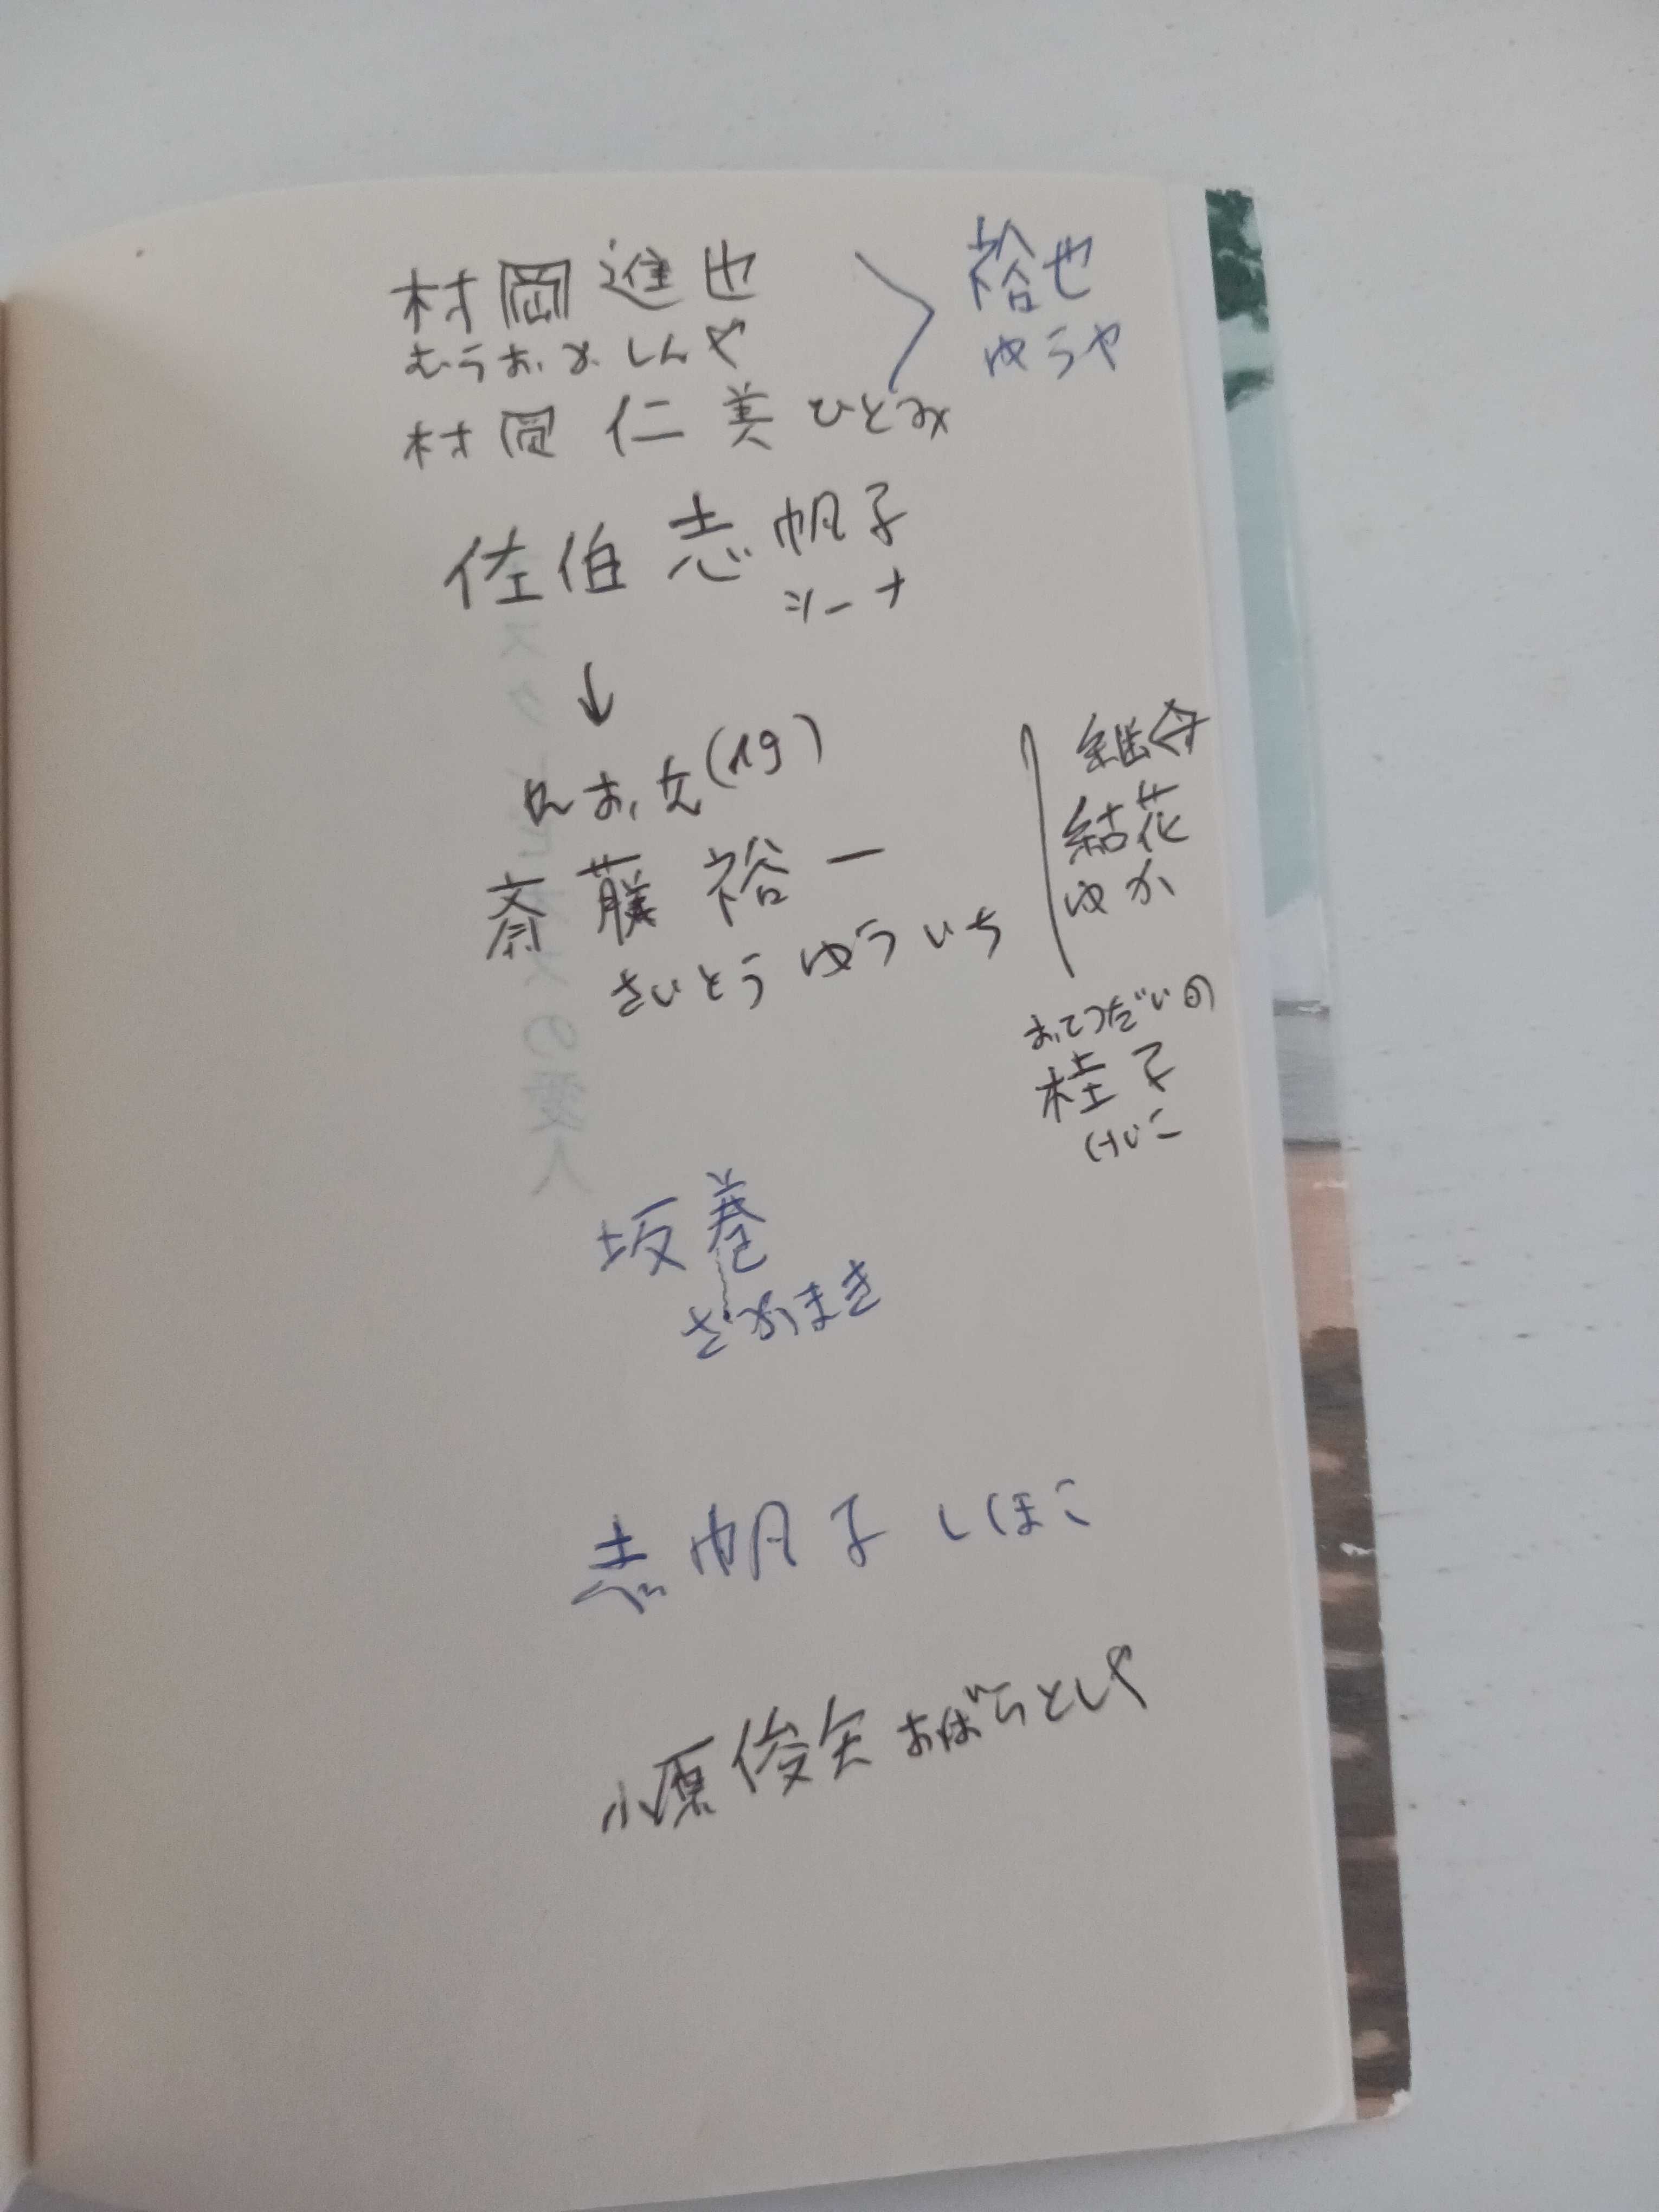 村岡 進也
むらおか しんや
裕也
ゆうや
村岡 仁美 ひとみ
佐伯 志帆子
シーナ
↓
(19)
斎藤 裕一
さいとう ゆういち
継母
結花
ゆか
おてつだいの
桂子
けいこ
坂巻
さかまき
志帆子 しほこ
小原俊矢 おばらとしや
の愛人